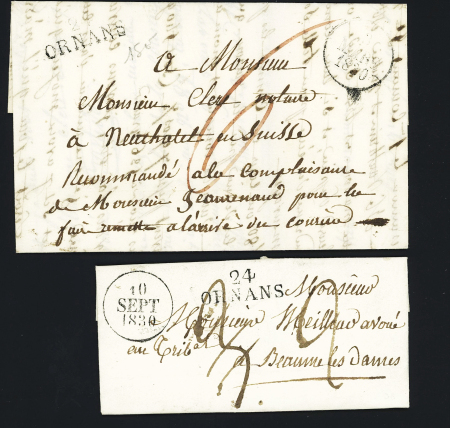 ORNANS
150
1830
a Monsieur
Monsieur Clerc notaire
à Neuchatel en Suisse
Recommandé a la complaisance
de Monsieur Jeanrenaud pour le
faire remettre a larivé du courier
6
10
SEPT
1830
24
ORNANS
à Monsieur
Monsieur Meilleau avoué
au Tribal
a Beaume les Dames